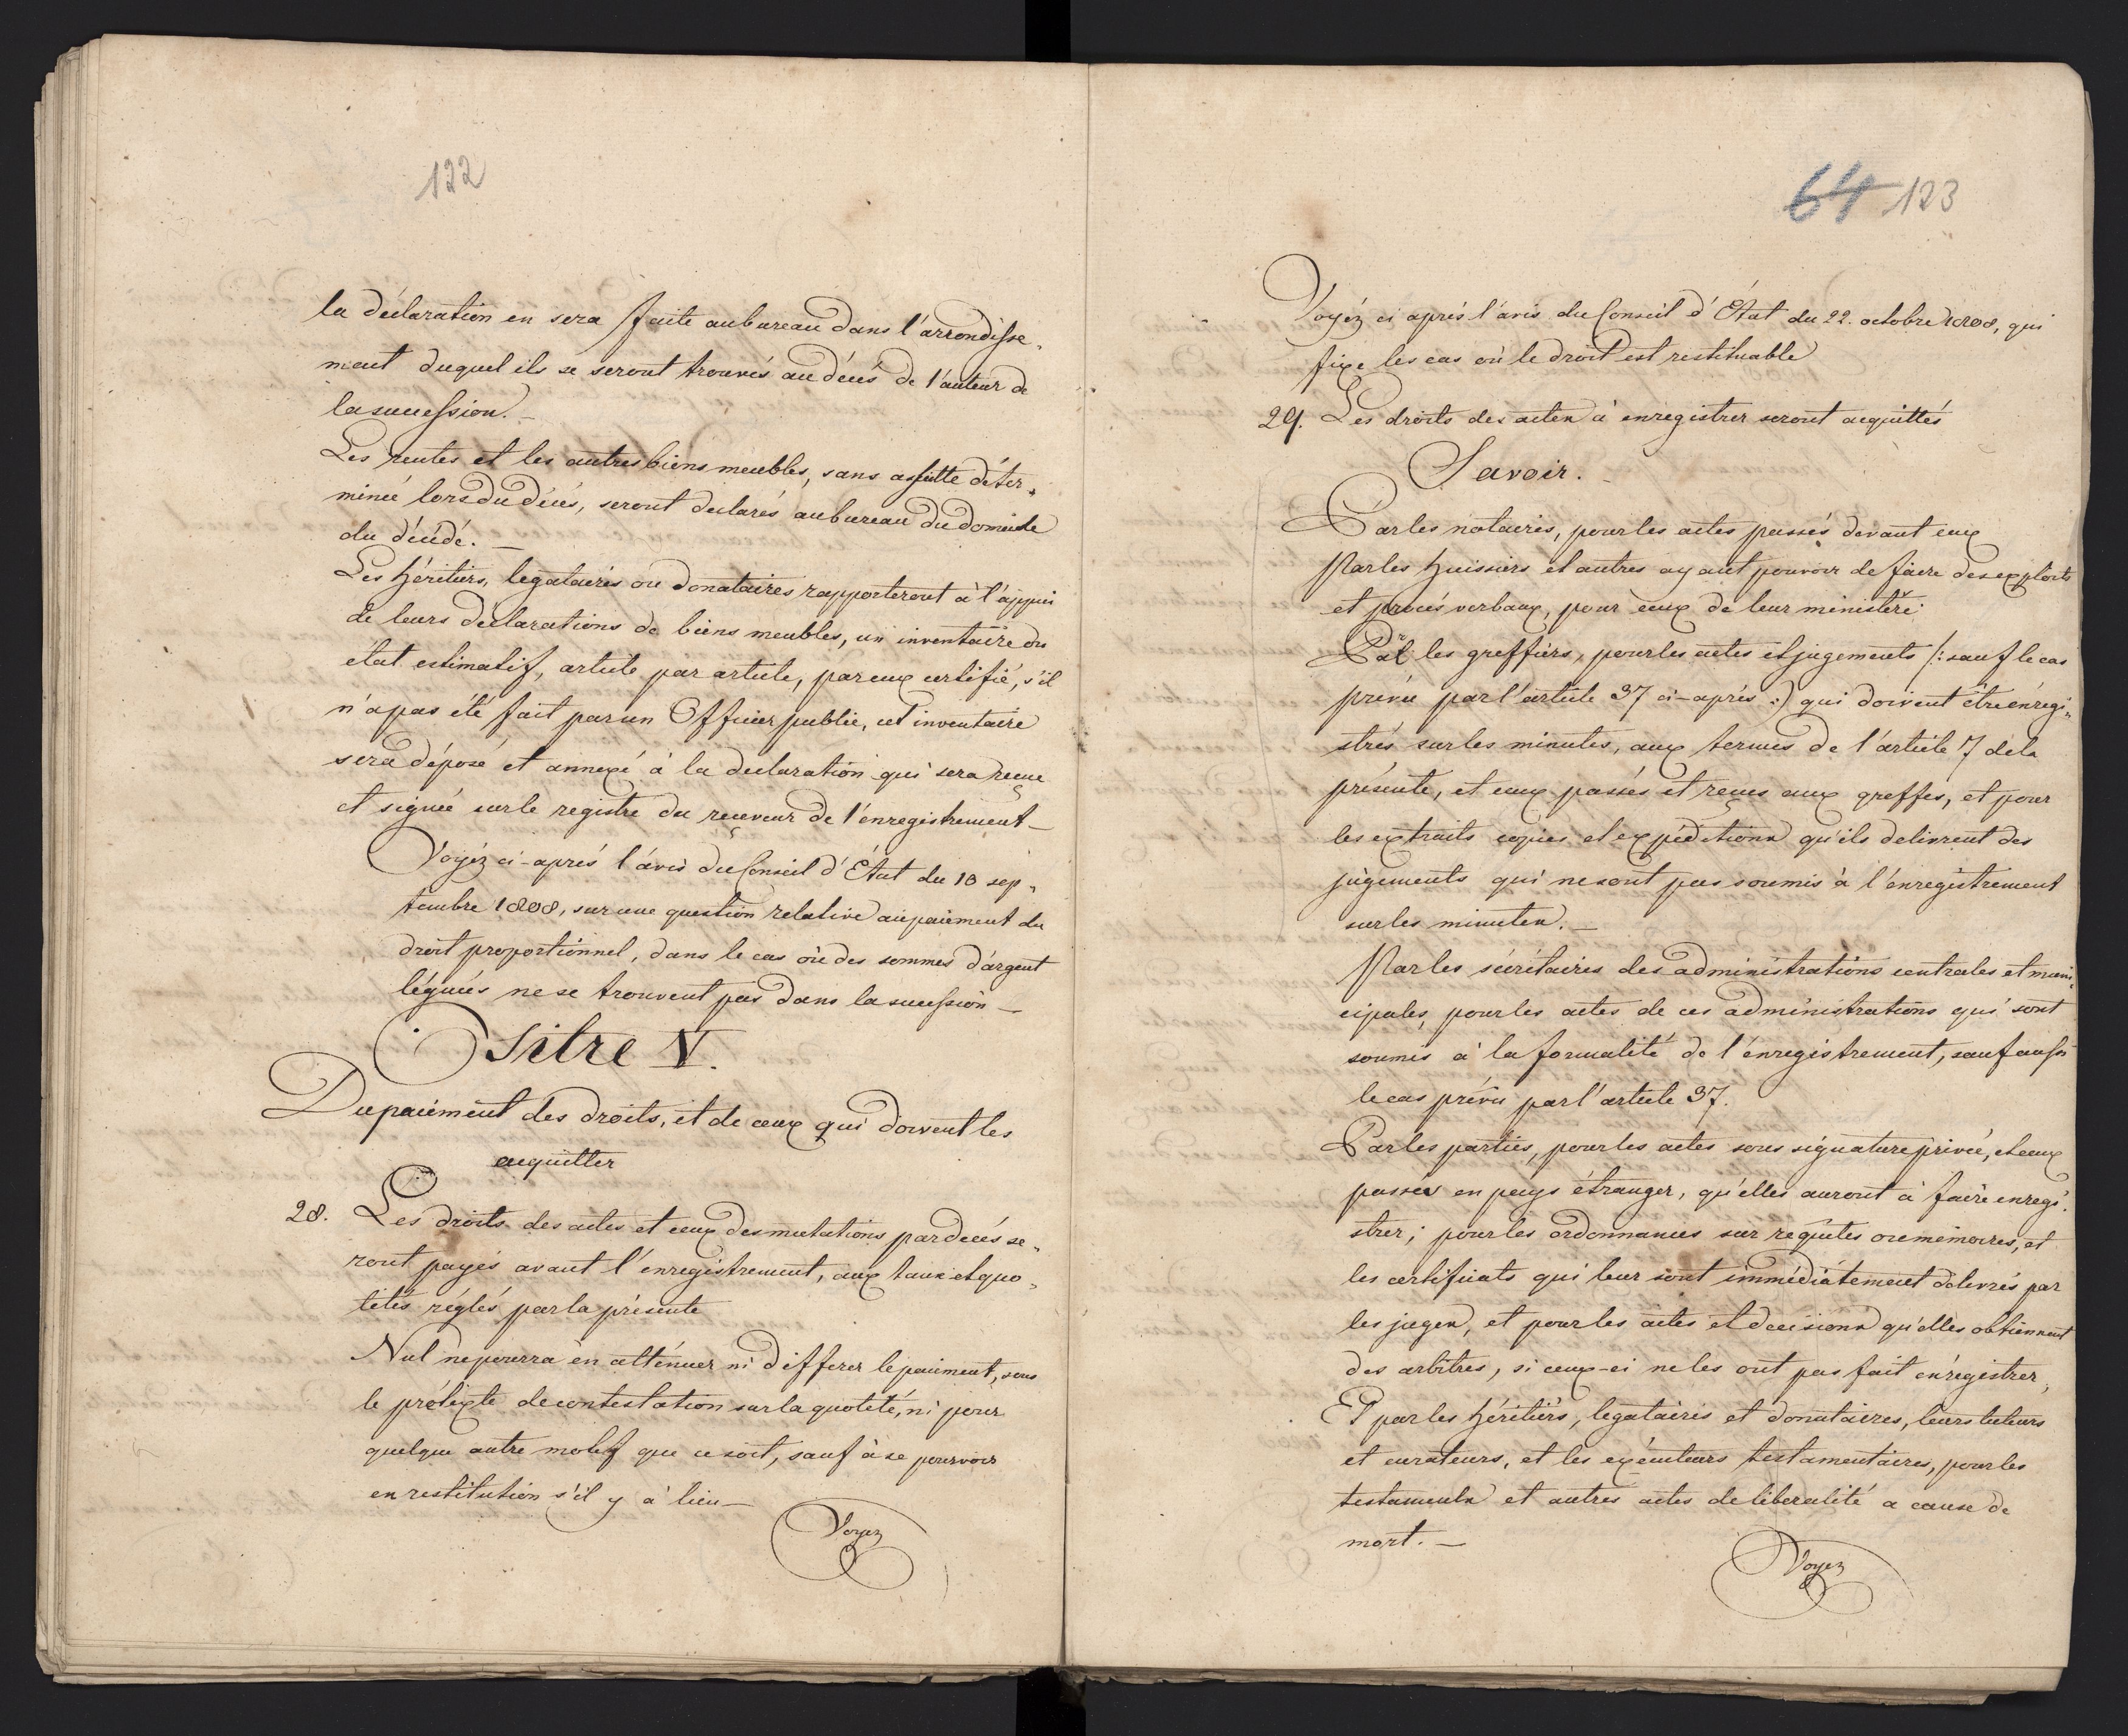 122
la déclaration en sera faite au bureau dans l'arrondisse-
ment duquel ils se seront trouvés au décés de l'auteur de
la succession. —
Les rentes et les autres biens meubles, sans assiette déter-
minée lors du décés, seront declarés au bureau du domicile
du décédé. —
Les héritiers, legataires ou donataires rapporteront à l'appui
de leurs declarations de biens meubles, un inventaire ou
état estimatif, article par article, par eux certifié, s'il
n'a pas été fait par un Officier public, cet inventaire
sera déposé et annexé à la declaration qui sera reçue
et signée sur le registre du receveur de l'enregistrement —
Voyéz ci-aprés l'avis du Conseil d'État du 10 sep-
tembre 1808, sur une question relative au paiement du
droit proportionnel, dans le cas où des sommes d'argent
léguées ne se trouvent pas dans la succession —
Titre V.
Du paiement des droits, et de ceux qui doivent les
acquitter
28. Les droits des actes et ceux des mutations par decés se-
ront payés avant l'enregistrement, aux taux et quo-
tités réglés par la présente
Nul ne pourra en atténuer ni differer le paiment, sous
le prétexte de contestation sur la quotité, ni pour
quelque autre motif que ce soit, sauf à se pourvoir
en restitution s'il y a lieu —
Voyez
64 123
Voyéz ci aprés l'avis du Conseil d'État du 22. octobre 1808, qui
fixe les cas où le droit est restituable
29. Les droits des actes à enregistrer seront acquittés
Savoir. —
Par les notaires, pour les actes passés devant eux
Par les huissiers et autres ayant pouvoir de faire des exploits
et procés verbaux, pour ceux de leur ministère.
Par les greffiers, pour les actes et jugements /: sauf le cas
prévu par l'article 37 ci-aprés :) qui doivent être enregi-
strés sur les minutes, aux termes de l'article 7 de la
présente, et ceux passés et reçus aux greffes, et pour
les extraits copies et expéditions qu'ils delivrent des
jugements qui ne sont pas soumis à l'enregistrement
sur les minutes. —
Par les sécrétaires des administrations centrales et muni-
cipales, pour les actes de ces administrations qui sont
soumis à la formalité de l'enregistrement, sauf aussi
le cas prévu par l'article 37.
Par les parties, pour les actes sous signature privée, et ceux
passés en pays étranger, qu'elles auront à faire enregi-
strer; pour les ordonnances sur requêtes ou memoires, et
les certificats qui leur sont immédiatement délivrés par
les juges, et pour les actes et decisions qu'elles obtiennent
des arbitres, si ceux-ci ne les ont pas fait enregistrer,
Et par les héritiers, legataires et donataires, leurs tuteurs
et curateurs, et les exécuteurs testamentaires, pour les
testaments et autres actes de liberalité a cause de
mort. —
Voyez